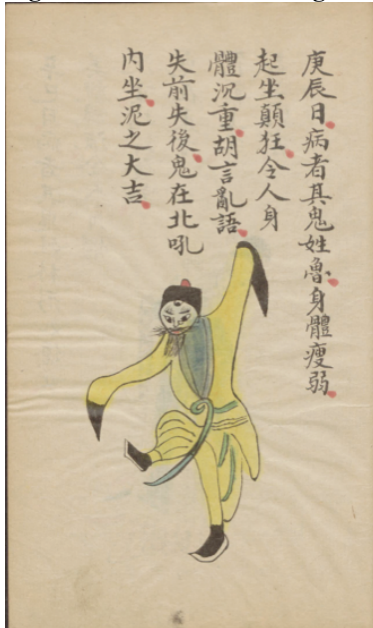 庚辰日病者其鬼姓魯身體瘦弱
起坐顛狂令人身
體沉重胡言亂語
失前失後鬼在北吼
內坐泥之大吉